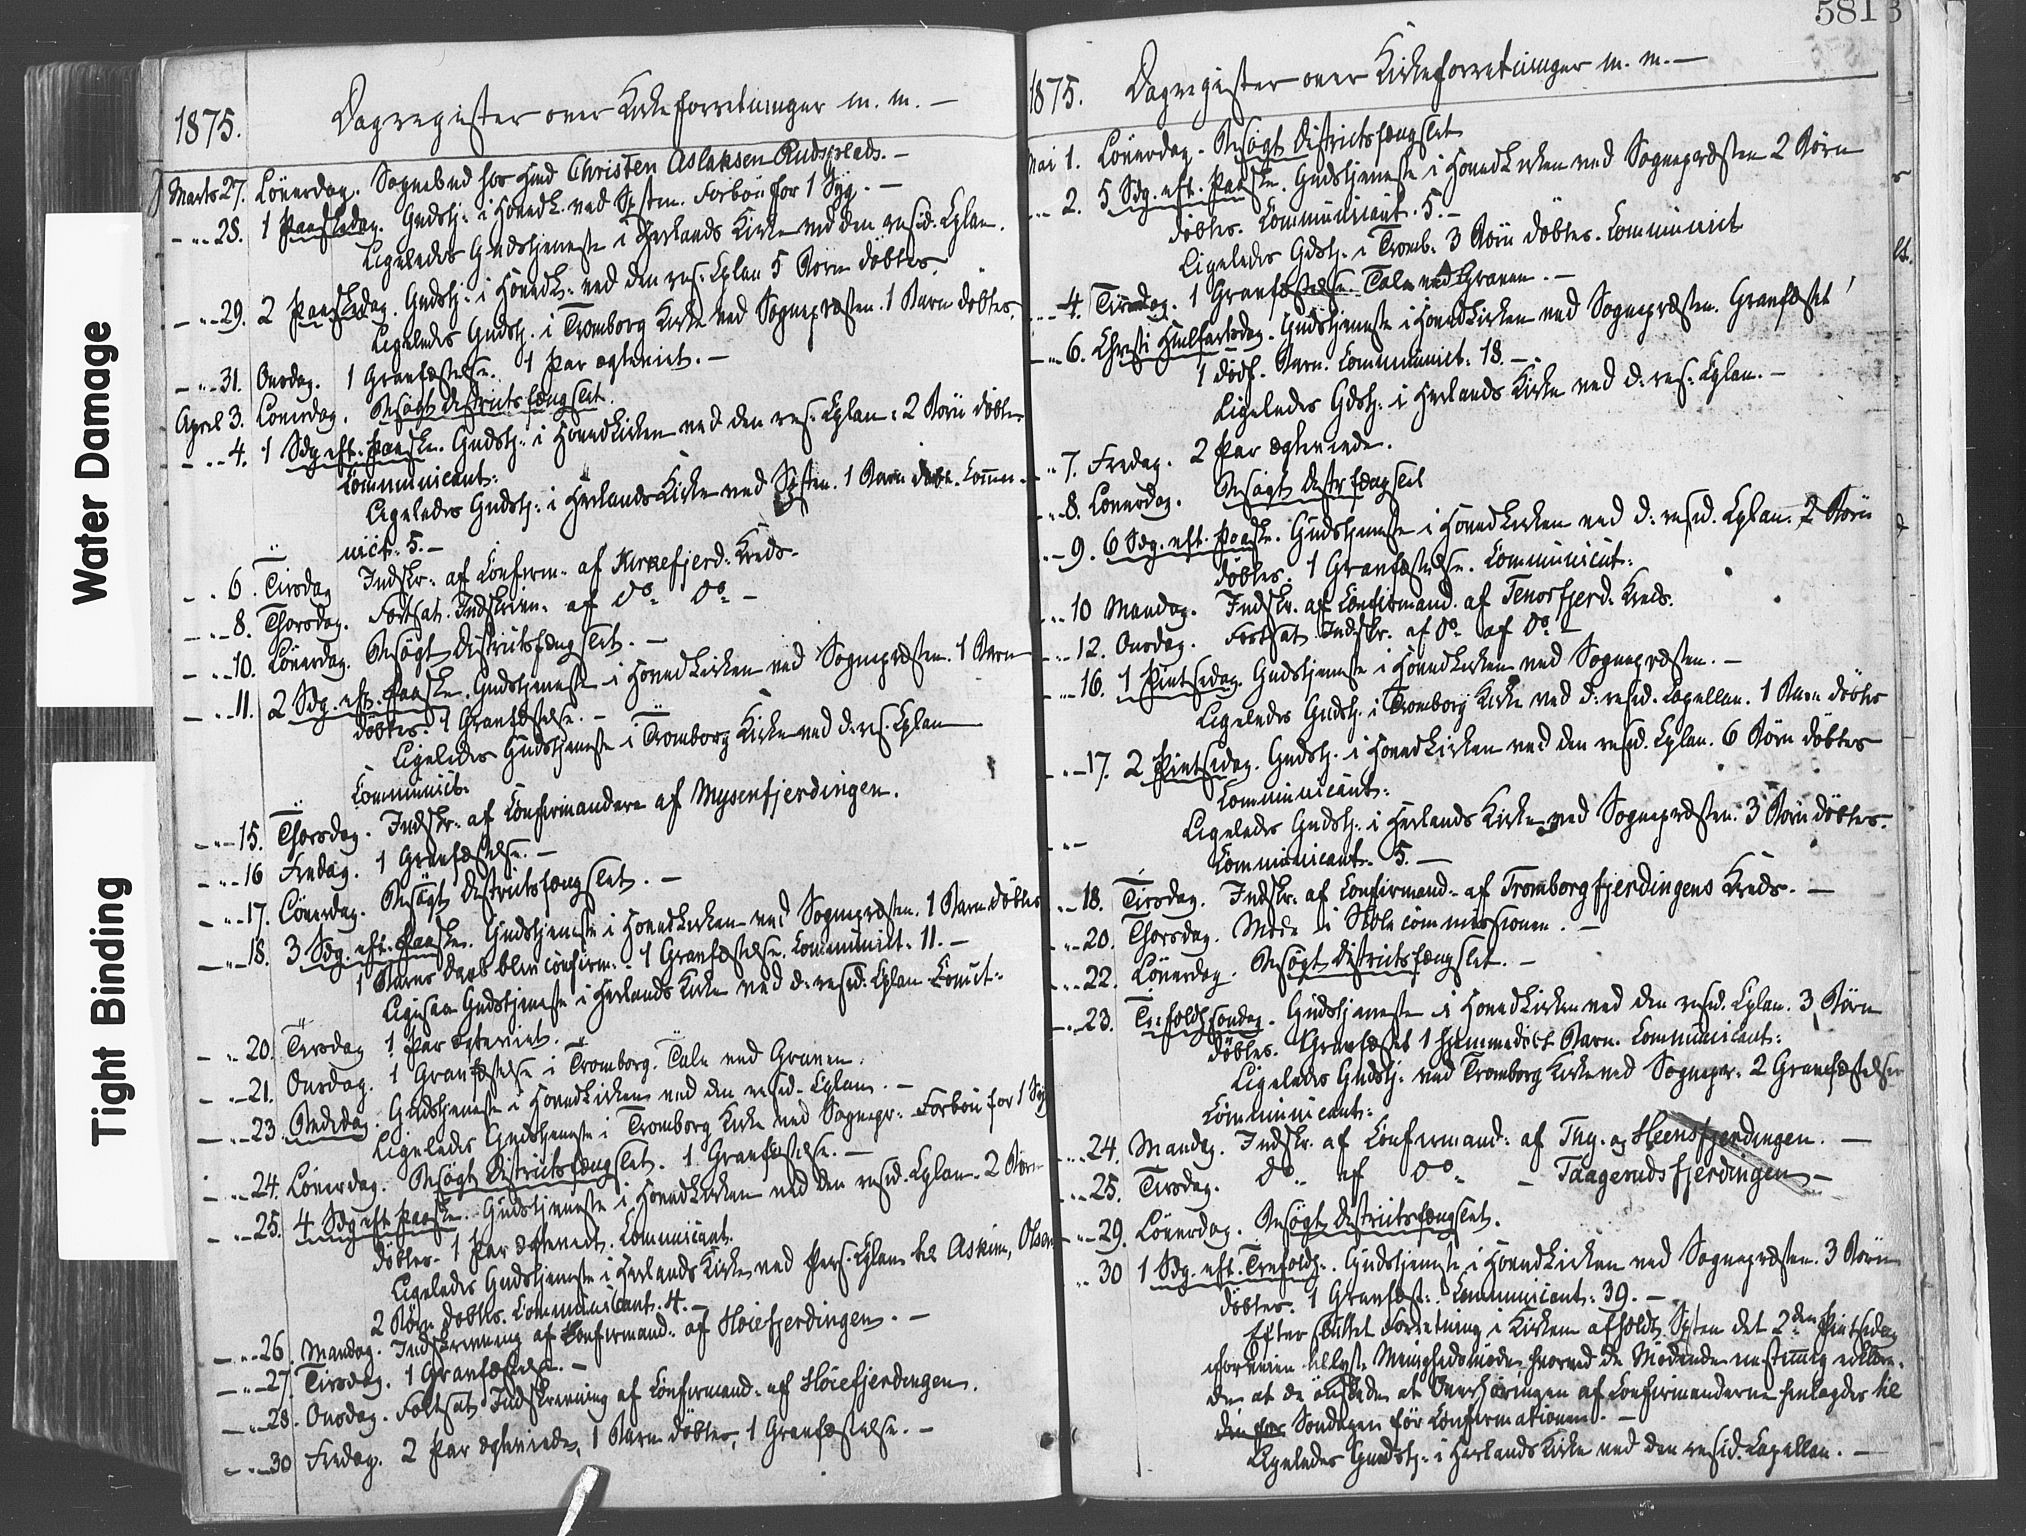 Water Damage
Tight Binding
1875. Dagregister over Kirkeforretninger m. m. —
Marts 27. Löverdag. Sognebud hos Hmd Christen Aslaksen Rudsplads. —
— „ — 28. 1 Paaskedag. Gudstj: i Hovedk. ved Spsten. Forbön for 1 Syg. —
Ligeledes Gudstjeneste i Herlands Kirke ved den resid. Cplan.
— „ — 29. 2 Paaskedag. Gudstj: i Hovedk: ved den res: Cplan 5 Börn döbtes.
Ligeledes Gudstj. i Tromborg Kirke ved Sognepræsten. 1 Barn döbtes.
— „ — 31. Onsdag. 1 Gravfæstelse. 1 Par ægteviet. —
April 3. Löverdag. Besögt Districtsfængslet.
— „ — 4. 1 Sdg eft. Paaske. Gudstj: i Hovedkirken ved den res: Cplan: 2 Börn döbtes
Communicant:
Ligeledes Gudstj: i Herlands Kirke ved Spsten. 1 Barn döbt. Commu-
nict. 5. —
— „ 6. Tirsdag Indskr: af Confirm: af Kirkefjerd: Kreds —
— „ — 8. Thorsdag. Fortsat Indskrivn: af Do Do —
— „ — 10. Löverdag. Besögt Districtsfængslet. —
— „ — 11. 2 Sdg. eft. Paaske. Gudstjeneste i Hovedkirken ved Sognepræsten. 1 Barn
döbtes. 1 Gravfæstelse. —
Ligeledes Gudstjeneste i Tromborg Kirke ved d. res. Cplan —
Communict.
— „ — 15. Thorsdag. Indskr: af Confirmandere af Mysenfjerdingen.
— „ — 16 Fredag. 1 Gravfæstelse. —
— „ — 17. Löverdag. Besögt Districtsfængslet. —
— „ — 18. 3 Sdg. eft. Paaske. Gudstjeneste i Hovedkirken ved Sognepræsten. 1 Barn döbtes
1 Barns Daab blev confirm: 1 Gravfæstelse. Communict. 11. —
Ligesaa Gudstjeneste i Herlands Kirke ved d. resid. Cplan Comct:
— „ 20. Tirsdag 1 Par ægteviet.
— „ — 21. Onsdag. 1 Gravfæstelse i Tromborg. Tale ved Graven.
— „ — 23. Bededag. Gudstjeneste i Hovedkirken ved den resid. Cplan. —
Ligeledes Gudstjeneste i Tromborg Kirke ved Sognepr: Forbön for 1 Syg
„ — 24. Löverdag. Besögt Districtsfængslet. 1 Gravfæstelse. —
„ — 25. 4 Sdg eft Paaske. Gudstjeneste i Hovedkirken ved den resid. Cplan. 2 Börn
döbtes. 1 Par ægteviedt. Communicant.
Ligeledes Gudstjeneste i Herlands Kirke ved Pers. Cplan til Askim, Olsen
2 Börn döbtes. Communicant. 4. —
— „ — 26. Mandag. Indskrivning af Confirmand: af Höiefjerdingen. —
— „ — 27. Tirsdag. 1 Gravfæstelse. —
— „ — 28. Onsdag. Fortsat Indskrivning af Confirmand. af Höiefjerdingen.
— „ — 30 Fredag. 2 Par ægteviede, 1 Barn döbtes, 1 Gravfæstelse. —
581
1875. Dagregister over Kirkeforretninger m. m. —
Mai 1. Löverdag. Besögt Districtsfængslet
— „ — 2. 5 Sdg. eft. Paaske. Gudstjeneste i Hovedkirken ved Sognepræsten 2 Börn
döbtes. Communicant. 5. —
Ligeledes Gdstj. i Tromb. 3 Börn döbtes. Communict
— 4. Tirsdag. 1 Gravfæstelse. Tale ved Graven. —
— „ — 6. Christi Himlfartsdag. Gudstjeneste i Hovedkirken ved Sognepræsten. Gravfæstet
1 dödf. Barn. Communict: 18. —
Ligeledes Gdstj. i Herlands Kirke ved d. res: Cplan. —
— „ 7. Fredag. 2 Par ægteviede.
— „ 8. Löverdag. Besögt Distrfængslet
— „ — 9. 6 Sdg. eft. Paaske. Gudstjeneste i Hovedkirken ved d. resid. Cplan. 2 Börn
döbtes. 1 Gravfæstelse. Communicant:
— „ — 10 Mandag. Indskr. af Confirmand. af Tenorfjerd. Kreds.
— „ — 12. Onsdag. Fortsat Indskr. af Do af Do —
— „ — 16. 1 Pintsedag. Gudstjeneste i Hovedkirken ved Sognepræsten. —
Ligeledes Gudstj. i Tromborg Kirke ved d. resid. Capellan. 1 Barn döbtes
— „ — 17. 2 Pintsedag. Gudstj. i Hovedkirken ved den resid. Cplan. 6 Börn döbtes
Communicant:
— „ — Ligeledes Gudstj. i Herlands Kirke ved Sognepræsten. 3 Börn döbtes.
Communicant. 5. —
— „ — 18. Tirsdag. Indskr. af Confirmand. af Tromborgfjerdingens Kreds. —
— „ — 20. Thorsdag. Möde i Skolecommissionen. —
— „ — 22. Löverdag. Besögt Districtsfængslet. —
— „ — 23. Trefoldhsöndag. Gudstjeneste i Hovedkirken ved den resid. Cplan. 3 Börn
döbtes. Gravfæstet 1 hjemmedöbt Barn. Communicant:
Ligeledes Gudstj. ved Tromborg Kirke ved Sognepr. 2 Gravfæstelser
Communicant:
— „ — 24. Mandag. Indskr. af Confirmand: af Thy. og Heensfjerdingen. —
— „ — 25. Tirsdag. Do af Do — Taagerudsfjerdingen —
— „ — 29. Löverdag. Besögt Districtsfængslet.
„ 30 1 Sdg. eft. Trefoldh. Gudstjeneste i Hovedkirken ved Sognepræsten. 3 Börn
döbtes. 1 Gravfæst: Communicant: 39. —
Efter sluttet Forretning i Kirken afholdt Spsten det 2den Pintsedag
forveien tillyste Menighedsmöde hvorved de Mödende eenstemmig erklære-
de at de önskede at Overhöringen af Confirmanderne henlagdes til
den for Söndagen för Confirmationen. —
Ligeledes Gudstj. i Herlands Kirke ved den resid. Capellan. —